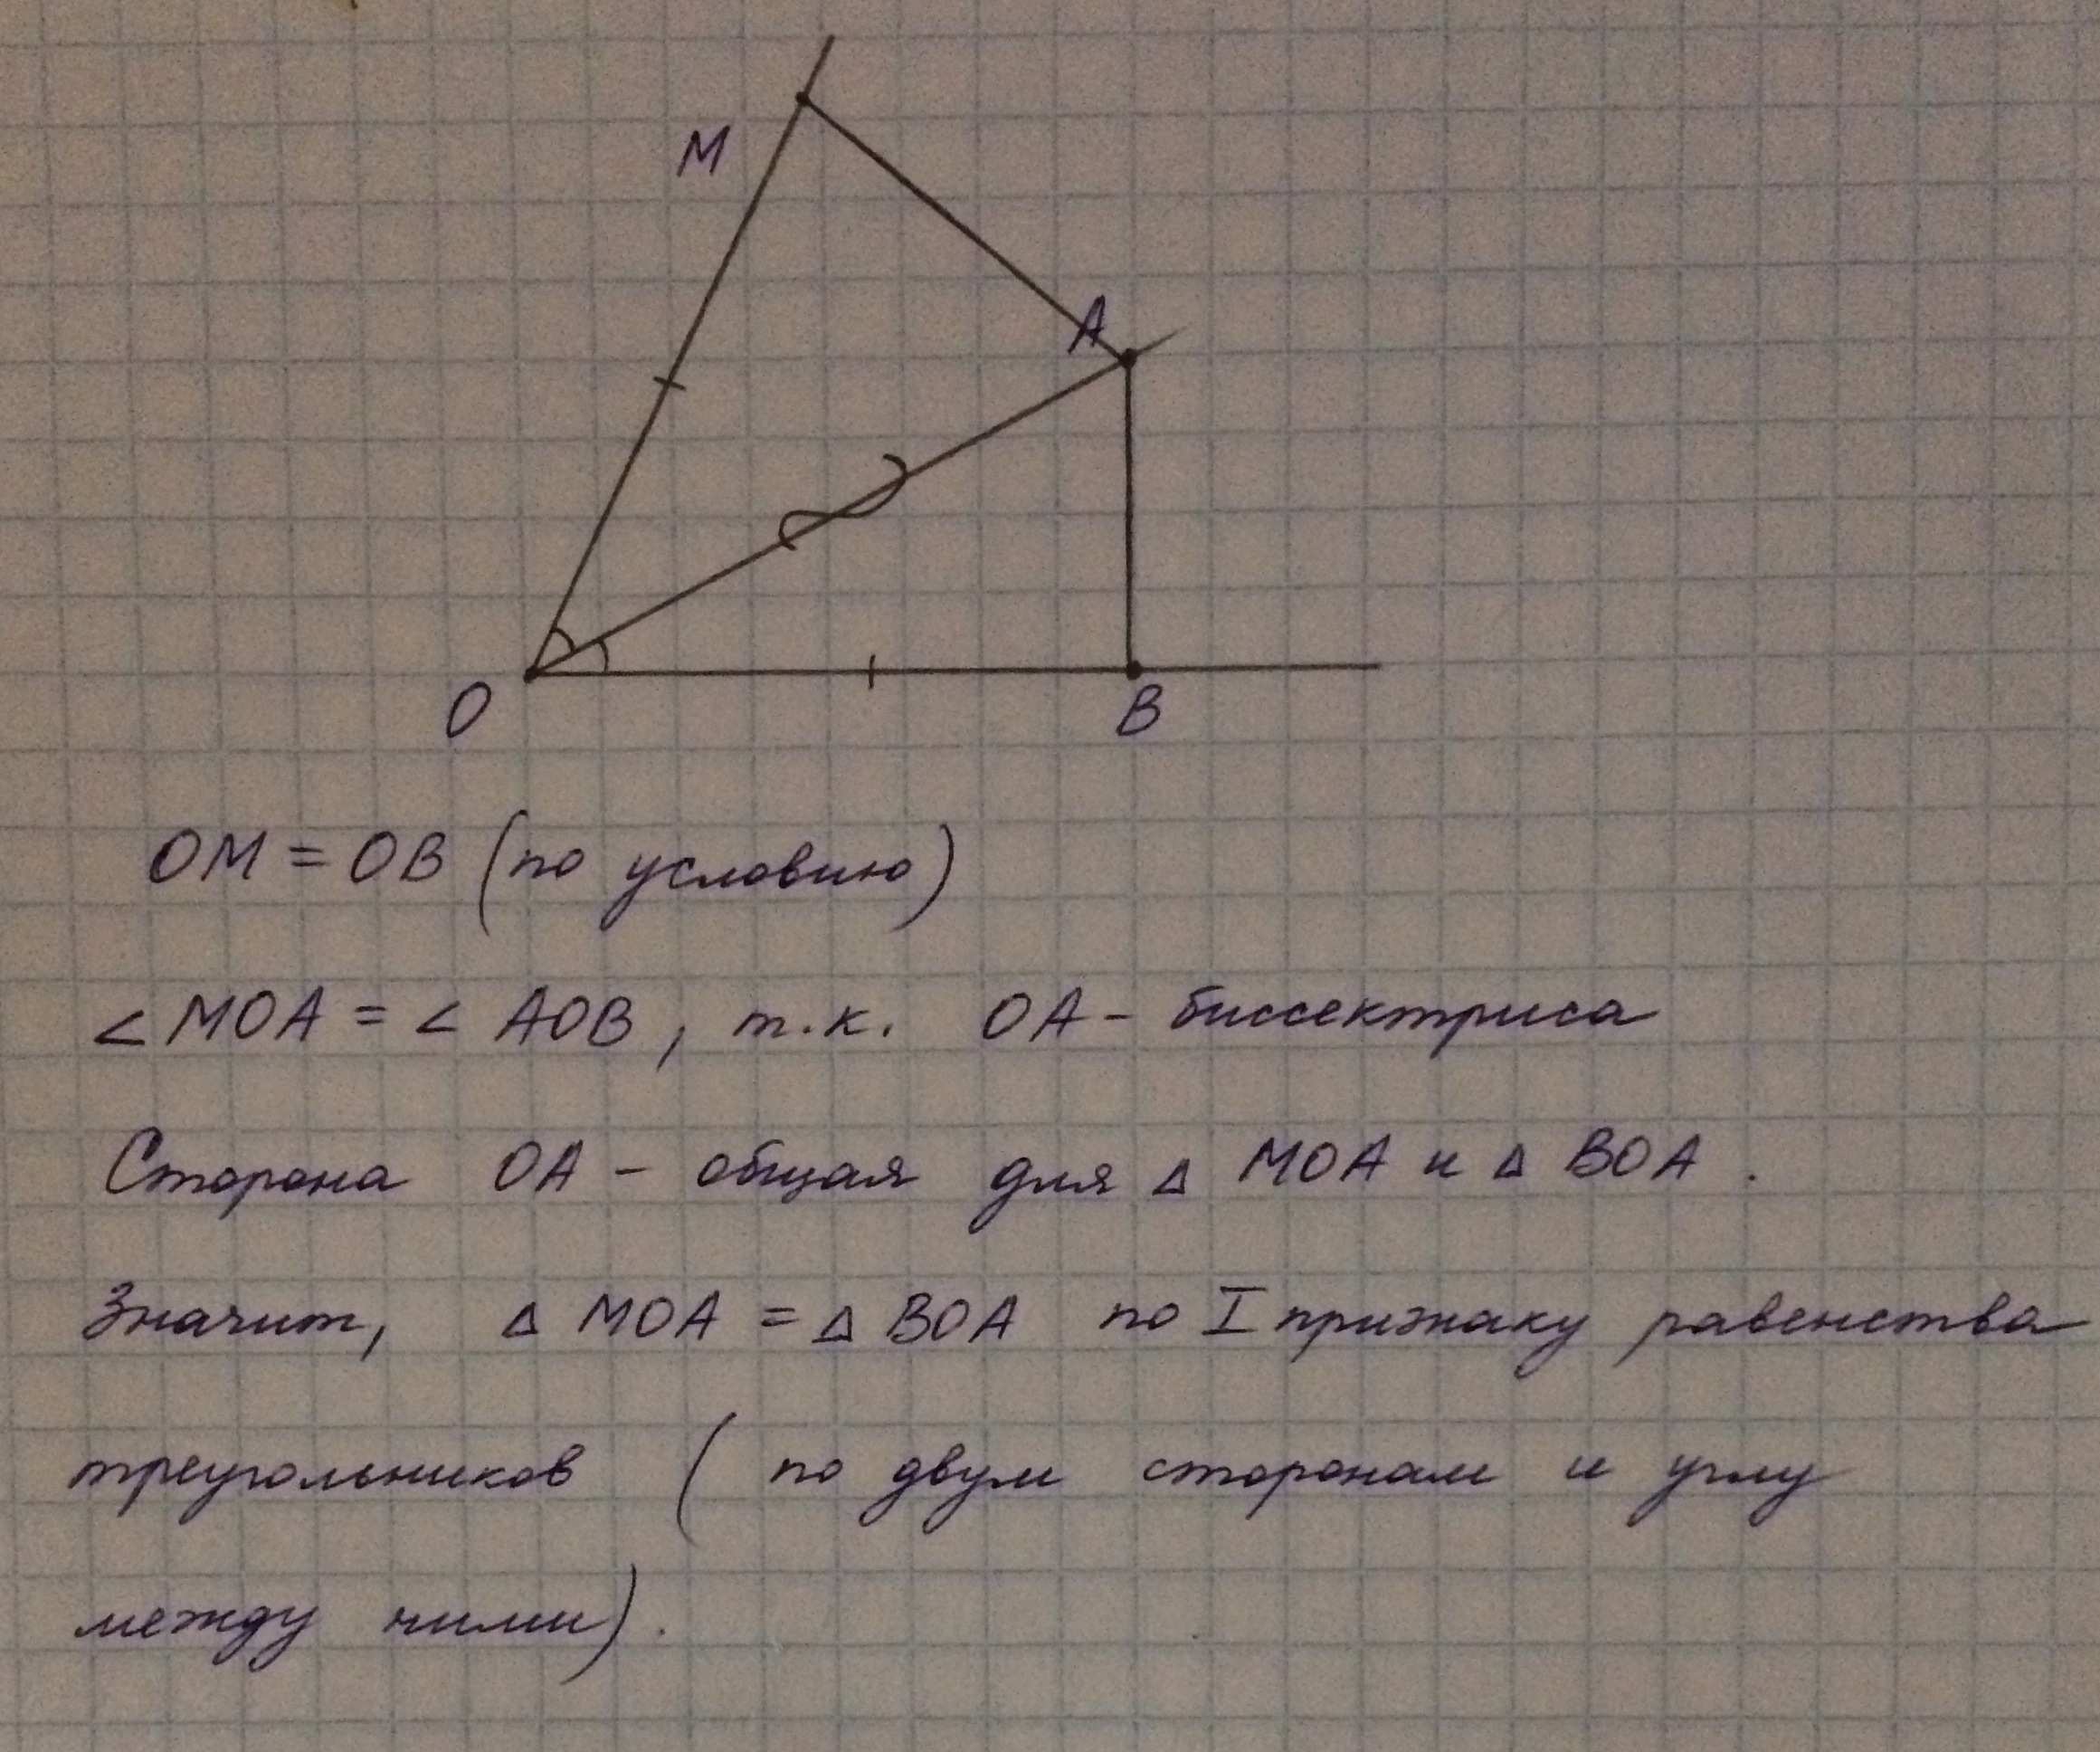 M
A
O
B
OM = OB (по условию)
∠MOA = ∠ AOB, т.к. OA - биссектриса
Сторона OA - общая для △ MOA и △ BOA.
Значит, △ MOA = △ BOA по I признаку равенства
треугольников ( по двум сторонам и углу
между ними).